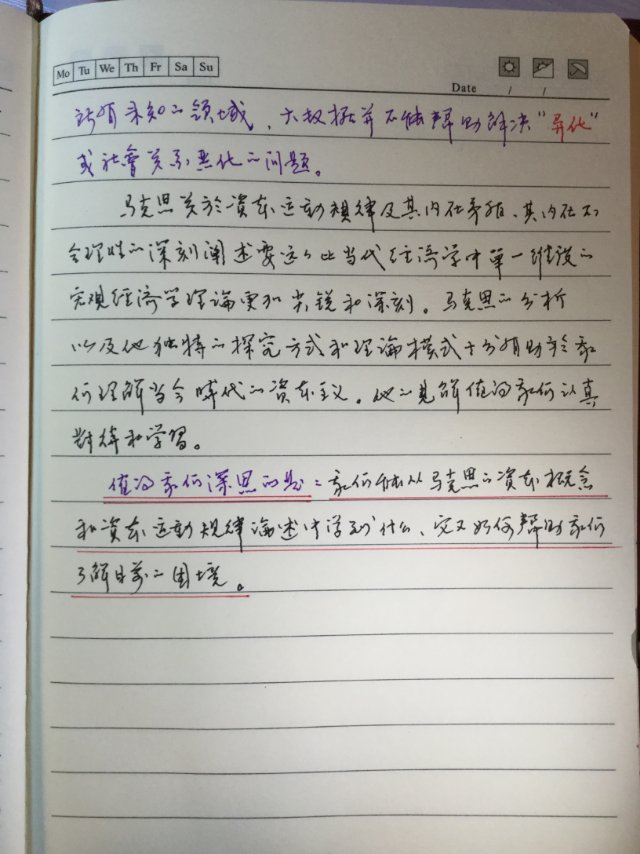 Mo Tu We Th Fr Sa Su
Date / /
所有未知的领域，大数据并不能帮助解决“异化”
或社會关系恶化的问题。
马克思关於资本运动規律及其内在矛盾、其内在不
合理性的深刻阐述要远比当代经濟学中單一维度的
宏观经濟学理論更加尖锐和深刻。马克思的分析
以及他独特的探究方式和理論模式十分有助於我
们理解当今時代的资本主义。他的見解值得我们认真
對待和学習。
值得我们深思的是：我们能从马克思的资本概念
和资本运動規律論述中学到什么、它又如何幫助我们
了解目前的困境。